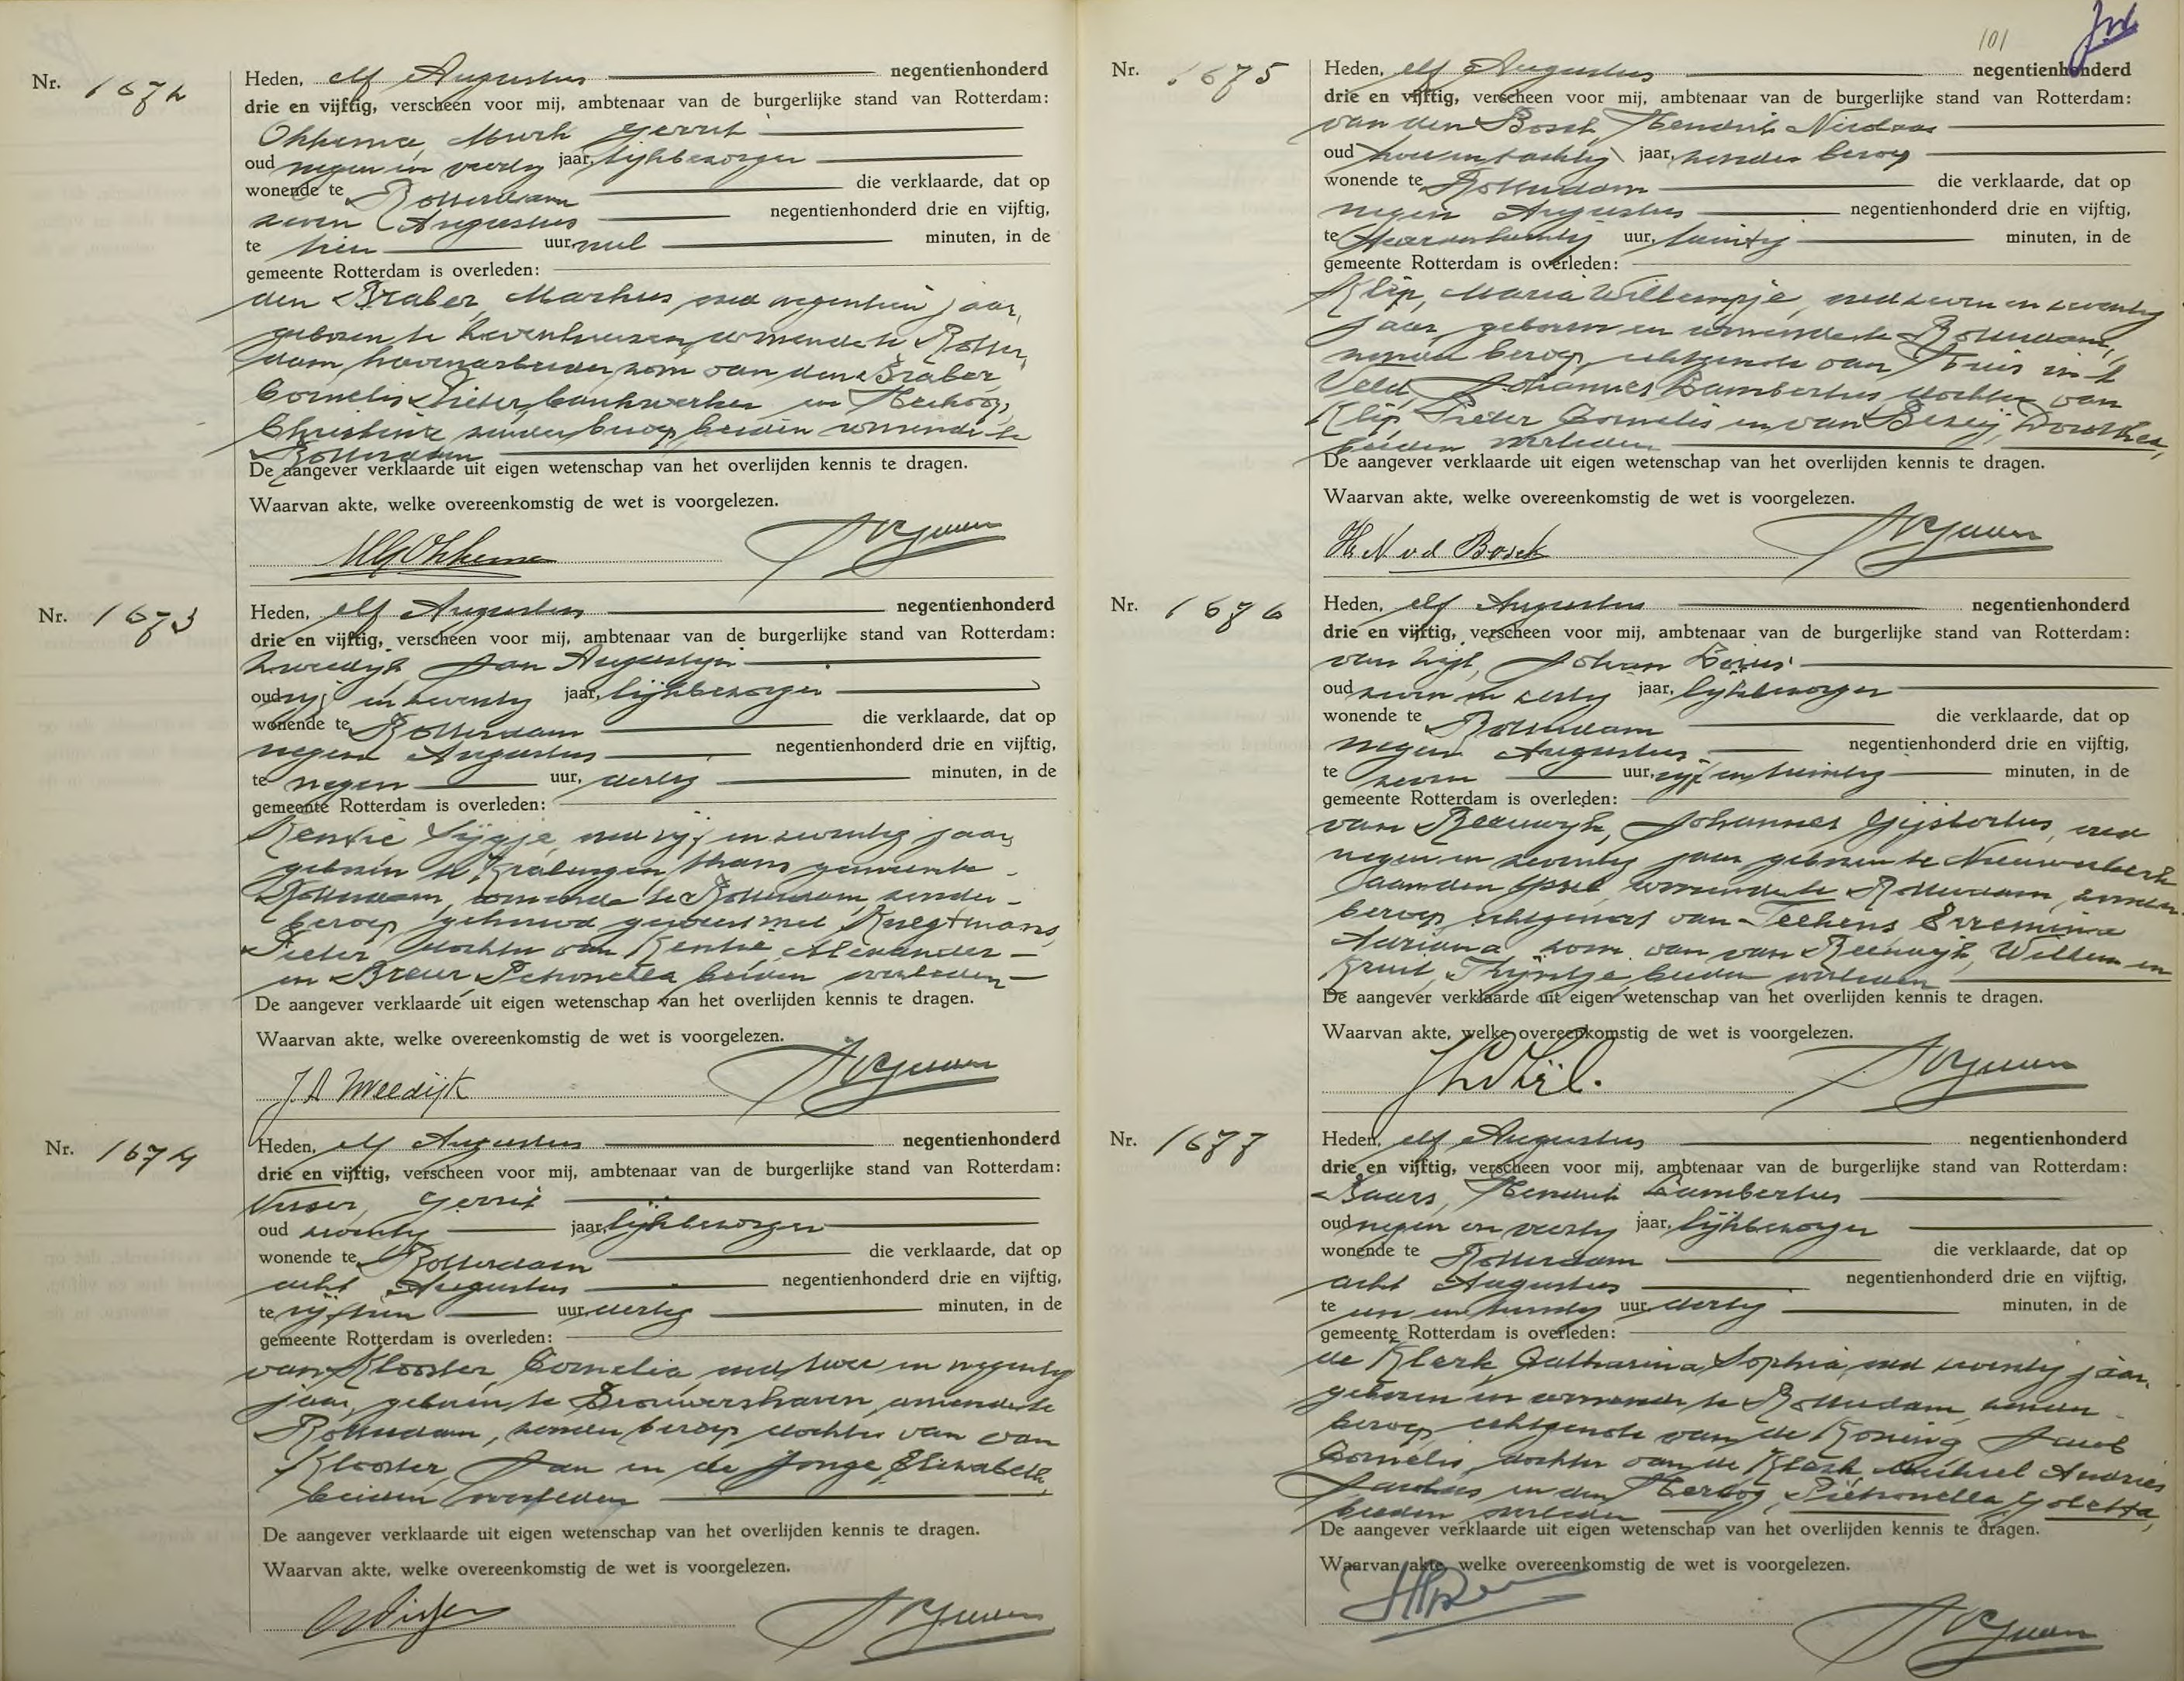 Nr. 1672
Heden, elf Augustus negentienhonderd
drie en vijftig, verscheen voor mij, ambtenaar van de burgerlijke stand van Rotterdam:
Okkema, Murk Gerrit
oud negen en veertig jaar, lijkbezorger
wonende te Rotterdam die verklaarde, dat op
zeven Augustus negentienhonderd drie en vijftig,
te tien uur, nul minuten, in de
gemeente Rotterdam is overleden:
den Braber, Markus, oud negentien jaar,
geboren te Zevenhuizen, wonende te Rotter-
dam, havenarbeider, zoon van den Braber,
Cornelis Pieter, bankwerker en
Christina, zonder beroep, beiden wonende te
Rotterdam
De aangever verklaarde uit eigen wetenschap van het overlijden kennis te dragen.
Waarvan akte, welke overeenkomstig de wet is voorgelezen.
MG Okkema
Nr. 1673
Heden, elf Augustus negentienhonderd
drie en vijftig, verscheen voor mij, ambtenaar van de burgerlijke stand van Rotterdam:
Zweedijk, Jan Augustijn
oud vijf en zeventig jaar, lijkbezorger
wonende te Rotterdam die verklaarde, dat op
negen Augustus negentienhonderd drie en vijftig,
te negen uur, dertig minuten, in de
gemeente Rotterdam is overleden:
Kentie, Sijgje, oud vijf en zeventig jaar,
geboren te Kralingen, thans gemeente
Rotterdam, wonende te Rotterdam, zonder
beroep, gehuwd geweest met Kregtmans,
Pieter, dochter van Kentie, Alexander
en Breur, Petronella, beiden overleden
De aangever verklaarde uit eigen wetenschap van het overlijden kennis te dragen.
Waarvan akte, welke overeenkomstig de wet is voorgelezen.
J.A Zweedijk
Nr. 1674
Heden, elf Augustus negentienhonderd
drie en vijftig, verscheen voor mij, ambtenaar van de burgerlijke stand van Rotterdam:
Visser, Gerrit
oud zeventig jaar, lijkbezorger
wonende te Rotterdam die verklaarde, dat op
acht Augustus negentienhonderd drie en vijftig,
te vijftien uur, dertig minuten, in de
gemeente Rotterdam is overleden:
van Klooster, Cornelia, oud twee en negentig
jaar, geboren te Brouwershaven, wonende te
Rotterdam, zonder beroep, dochter van van
Klooster, Jan en de Jonge, Elizabeth,
beiden overleden
De aangever verklaarde uit eigen wetenschap van het overlijden kennis te dragen.
Waarvan akte, welke overeenkomstig de wet is voorgelezen.
G Visser
101
Nr. 1675
Heden, elf Augustus negentienhonderd
drie en vijftig, verscheen voor mij, ambtenaar van de burgerlijke stand van Rotterdam:
van den Bosch, Hendrik Nicolaas
oud twee en tachtig jaar, zonder beroep
wonende te Rotterdam die verklaarde, dat op
negen Augustus negentienhonderd drie en vijftig,
te twee en twintig uur, twintig minuten, in de
gemeente Rotterdam is overleden:
Klip, Maria Willempje, oud zeven en zeventig
jaar, geboren en wonende te Rotterdam,
zonder beroep, echtgenote van Huis in 't
Veld, Johannes Lambertus, dochter van
Klip, Pieter Cornelis en van Dorothea,
beiden overleden
De aangever verklaarde uit eigen wetenschap van het overlijden kennis te dragen.
Waarvan akte, welke overeenkomstig de wet is voorgelezen.
H N v d Bosch
Nr. 1676
Heden, elf Augustus negentienhonderd
drie en vijftig, verscheen voor mij, ambtenaar van de burgerlijke stand van Rotterdam:
van Zijl, Johan Louis
oud zeven en dertig jaar, lijkbezorger
wonende te Rotterdam die verklaarde, dat op
negen Augustus negentienhonderd drie en vijftig,
te zeven uur, vijf en twintig minuten, in de
gemeente Rotterdam is overleden:
van Reeuwijk, Johannes Gijsbertus, oud
negen en zeventig jaar, geboren te Nieuwerkerk
aan den IJssel, wonende te Rotterdam, zonder
beroep, echtgenoot van Teekens,
Adriana, zoon van van Reeuwijk, Willem en
Kruit, Trijntje, beiden overleden
De aangever verklaarde uit eigen wetenschap van het overlijden kennis te dragen.
Waarvan akte, welke overeenkomstig de wet is voorgelezen.
JLvZijl.
Nr. 1677
Heden, elf Augustus negentienhonderd
drie en vijftig, verscheen voor mij, ambtenaar van de burgerlijke stand van Rotterdam:
Baars, Hendrik Lambertus
oud negen en veertig jaar, lijkbezorger
wonende te Rotterdam die verklaarde, dat op
acht Augustus negentienhonderd drie en vijftig,
te een en twintig uur, dertig minuten, in de
gemeente Rotterdam is overleden:
de Klerk, Catharina Sophia, oud zeventig jaar,
geboren en wonende te Rotterdam, zonder
beroep, echtgenote van de Koning, Jacob
Cornelis, dochter van de Klerk, Michiel Andries
Jacobus en den Hertog, Pietronella Goletta,
beiden overleden
De aangever verklaarde uit eigen wetenschap van het overlijden kennis te dragen.
Waarvan akte, welke overeenkomstig de wet is voorgelezen.